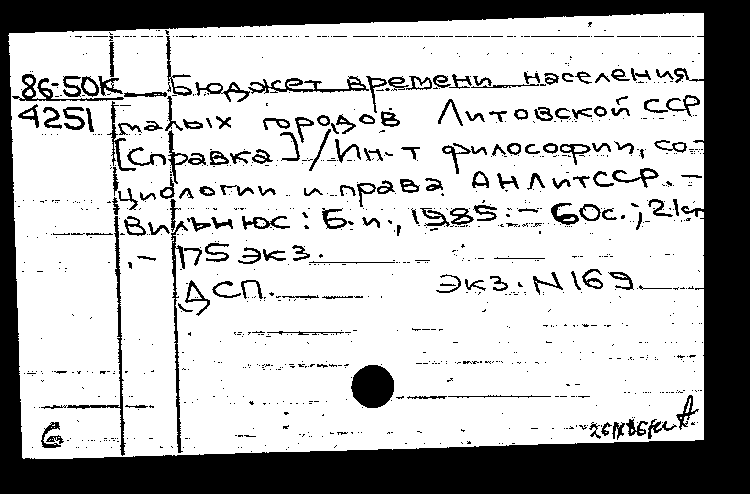 86-50к Бюджет времени населения
4251 малых городов Литовской ССР
[Справка] / Ин-т философии, со-
циологии и права АН ЛитССР. –
Вильнюс: Б.и., 1985. – 60с.; 21см
. – 175 экз.
ДСП. Экз. N 169.
6